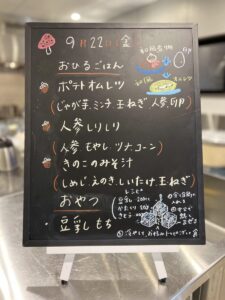 9月22日(金)
おひるごはん
ポテトオムレツ
(じゃが芋 ミンチ 玉ねぎ 人参 卵)
人参しりしり
(人参 もやし ツナ コーン)
きのこのみそ汁
(しめじ えのき しいたけ 玉ねぎ)
おやつ
・豆乳もち
レシピ
豆乳